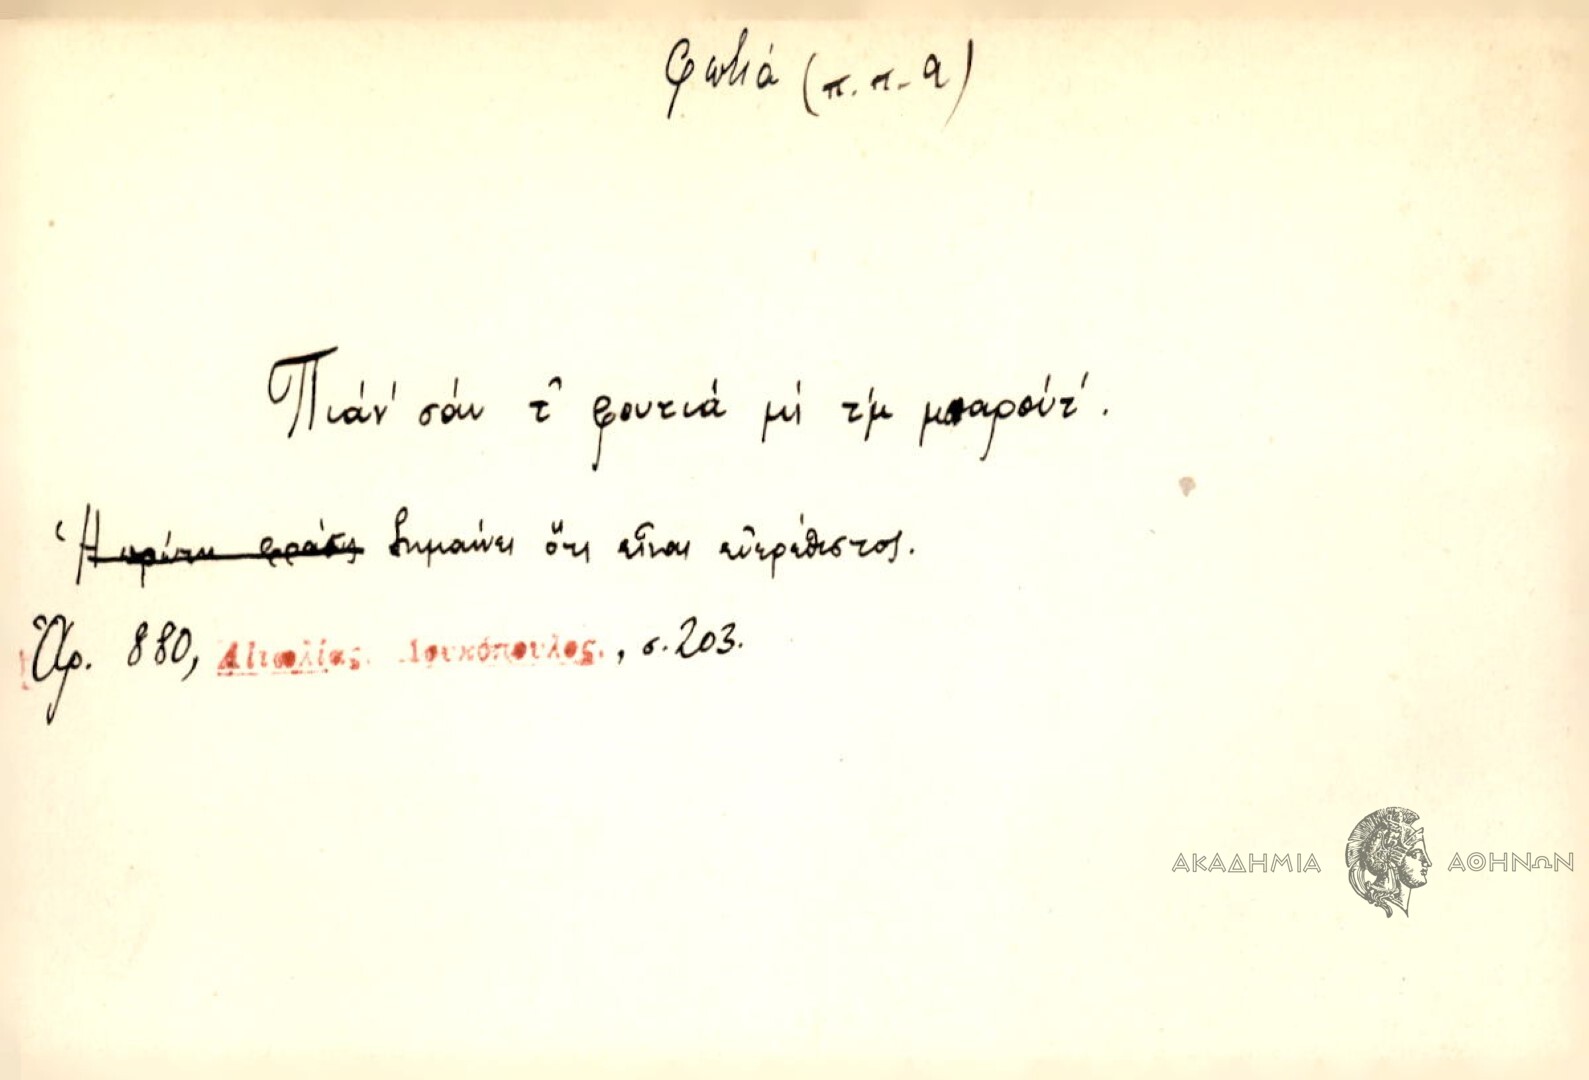 φωτιά (π.π.α)
Πιάν' σάν τ' φουτιά μί τ'μ μπαρούτ'.
Ἡ πρώτη φράσις σημαίνει ὅτι εἶναι εὐερέθιστος.
Ἀρ. 880, Αἰτωλίας. Λουκόπουλος., σ. 203.
ΑΚΑΔΗΜΙΑ ΑΘΗΝΩΝ